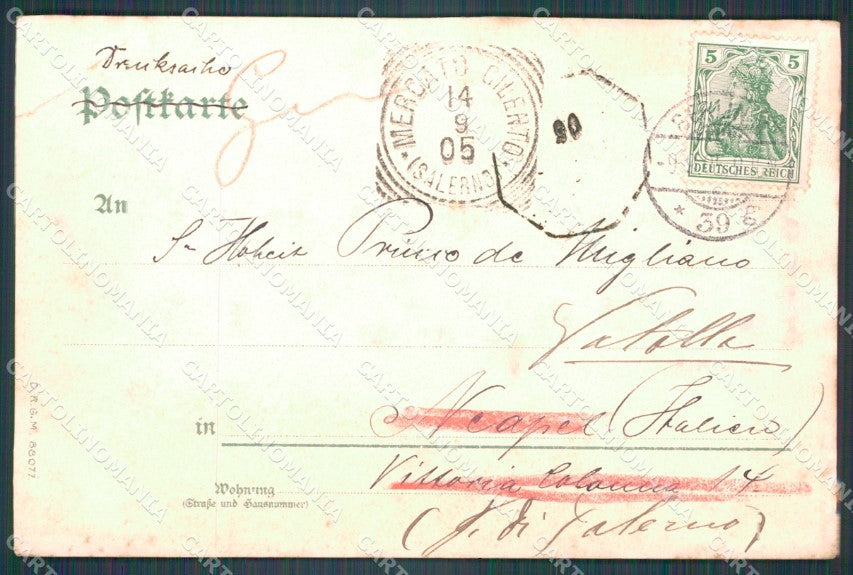 Drucksache
Postkarte
MERCATO CILENTO
14
9
05
(SALERNO)
5 5
DEUTSCHES REICH
90
* 39 g
An
Sr Hoheit Prince de Migliano
Vatolla
in Neapel (Italien)
Vittoria Colonna 14.
Wohnung
(Straße und Hausnummer)
(P. di Salerno)
D.R.G.M. 88077
CARTOLINOMANIA